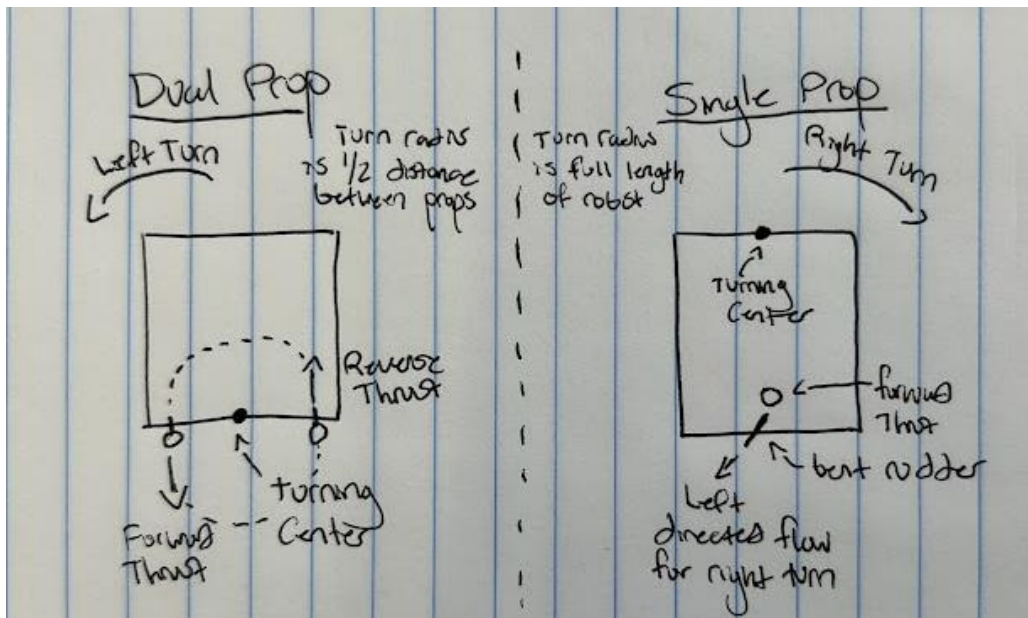 Dual Prop
Left Turn
Turn radius
is 1/2 distance
between props
Reverse
Thrust
Turning
Center
Forward
Thrust
Turn radius
is full length
of robot
Single Prop
Right Turn
Turning
Center
forward
Thrust
bent rudder
Left
directed flow
for right turn